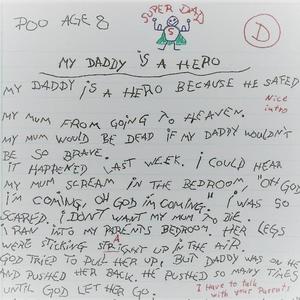 POO AGE 8
SUPER DAD
S
D
MY DADDY iS A HERO
MY DADDY iS A HERO BECAUSE HE SAFED
Nice
intro
MY MUM FROM GOING TO HEAVEN.
MY MUM WOULD BE DEAD IF MY DADDY WOULDN'T
BE SO BRAVE.
IT HAPPENED LAST WEEK. I COULD HEAR
MY MUM SCREAM IN THE BEDROOM, "OH GOD
I'M COMING, OH GOD iM COMING." I WAS SO
SCARED. I DON'T WANT MY MUM TO DIE.
I RAN INTO MY PARENTS BEDROOM. HER LEGS
WERE STICKING STRAIGHT UP IN THE AIR.
GOD TRIED TO PULL HER UP, BUT DADDY WAS ON HE
AND PUSHED HER BACK. HE PUSHED SO MANY TIMES
UNTIL GOD LET HER GO.
I have to talk
with your Parents